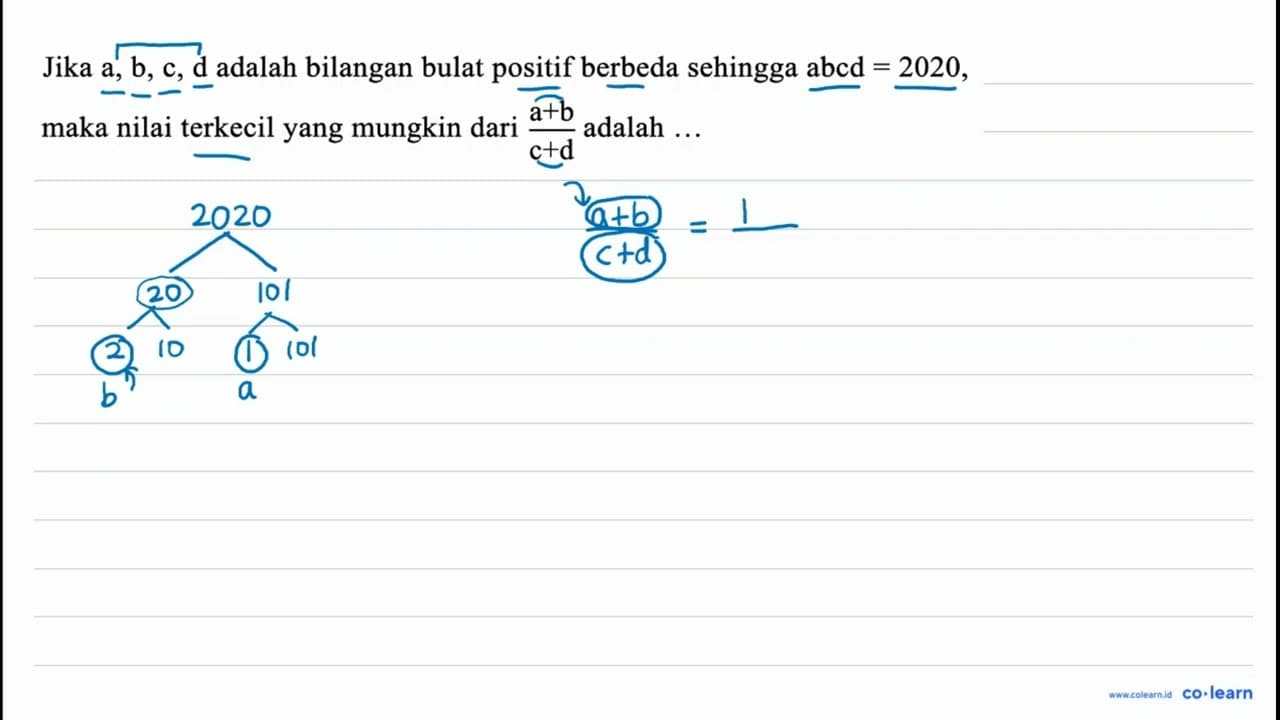 Jika a, b, c, d adalah bilangan bulat positif berbeda sehingga abcd = 2020,
maka nilai terkecil yang mungkin dari a+b/c+d adalah ...
2020
a+b/c+d = 1
20 101
2 10 1 101
b a
www.colearn.id co·learn